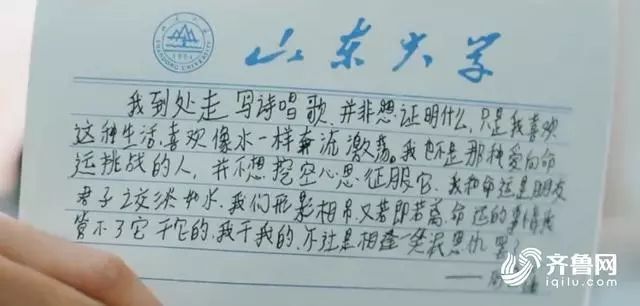 山东大学
1901
SHANDONG UNIVERSITY
我到处走 写诗唱歌，并非想证明什么，只是我喜欢
这种生活，喜欢像水一样奔流激荡。我也不是那种爱向命
运挑战的人，并不想挖空心思征服它。我和命运是朋友
君子之交淡如水，我们形影相吊又若即若离，命运的事情我
管不了它干它的，我干我的，不过是相逢一笑泯恩仇罢了
——
齐鲁网
iqilu.com